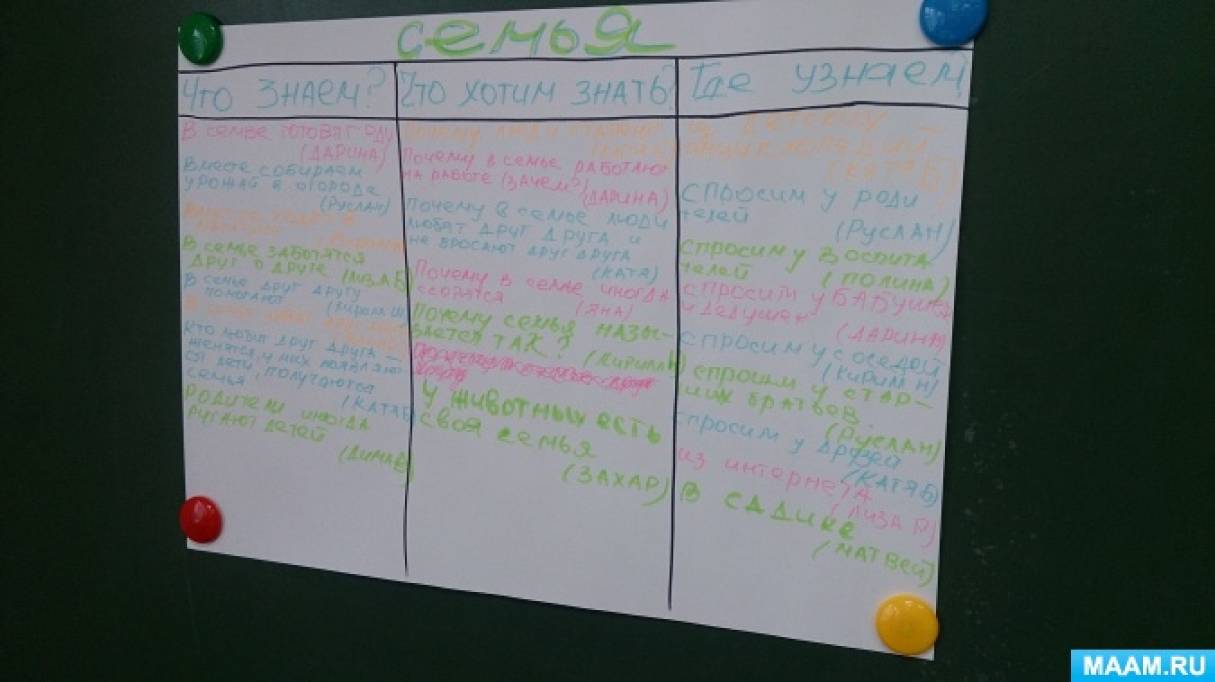 семья
Что знаем?
В семье готовят еду
(ДАРИНА)
Вместе собираем
урожай в огороде
(Руслан)
В семье заботятся
друг о друге (Лиза Б)
В семье друг другу
помогают (Кирилл Ш)
Кто любит друг друга –
женятся, у них появляют-
ся дети, получаются
семья. (КАТЯ Б)
Родители иногда
ругают детей
(Дима В)
Что хотим знать?
Почему в семье работают
на работе (зачем?)
(ДАРИНА)
Почему в семье люди
любят друг друга и
не бросают друг друга
(КАТЯ)
Почему в семье иногда
ссорятся (ЯНА)
Почему семья назы-
вается ТАК? (Кирилл Н)
У животных есть
своя семья
(ЗАХАР)
Где узнаем
из детских
энциклопедий
(КАТЯ Б)
спросим у роди
телей (Руслан)
спросим у воспита
телей (ПОЛИНА)
спросим у БАБУШек
и дедушек
(ДАРИНА)
спросим у соседей
(Кирилл Н)
спросим у стар-
ших братьев
(Руслан)
спросим у друзей
(КАТЯ Б)
из интернета
(Лиза Р)
в садике
(МАТВей)
MAAM.RU